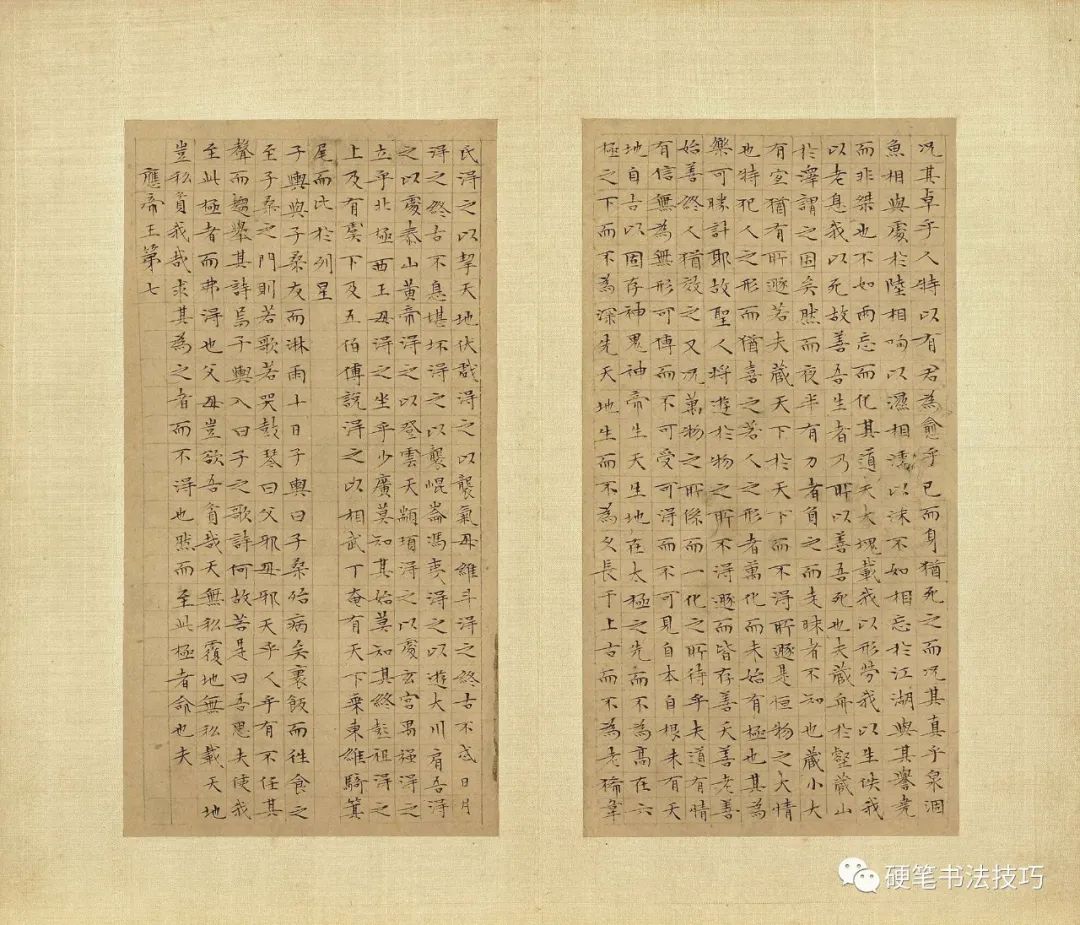 况其卓乎人特以有君為愈乎已而身猶死之而况其真乎泉涸
魚相與處於陸相呴以濕相濡以沫不如相忘於江湖與其譽堯
而非桀也不如兩忘而化其道夫大塊載我以形勞我以生佚我
以老息我以死故善吾生者乃所以善吾死也夫藏舟於壑藏山
於澤謂之固矣然而夜半有力者負之而走昧者不知也藏小大
有宜猶有所遯若夫藏天下於天下而不得所遯是恒物之大情
也特犯人之形而猶喜之若人之形者萬化而未始有極也其為
樂可勝計耶故聖人將遊於物之所不得遯而皆存善夭善老善
始善終人猶效之又况萬物之所係而一化之所待乎夫道有情
有信無為無形可傳而不可受可得而不可見自本自根未有天
地自古以固存神鬼神帝生天生地在太極之先而不為高在六
極之下而不為深先天地生而不為久長于上古而不為老狶韋
氏得之以挈天地伏戲得之以襲氣母維斗得之終古不忒日月
得之終古不息堪坏得之以襲崐崙馮夷得之以遊大川肩吾得
之以處泰山黄帝得之以登雲天顓頊得之以處玄宮禺強得之
立乎北極西王母得之坐乎少廣莫知其始莫知其終彭祖得之
上及有虞下及五伯傅說得之以相武丁奄有天下乘東維騎箕
尾而比於列星
子輿與子桑友而淋雨十日子輿曰子桑殆病矣裹飯而往食之
至子桑之門則若歌若哭鼓琴曰父邪母邪天乎人乎有不任其
聲而趨舉其詩焉子輿入曰子之歌詩何故若是曰吾思夫使我
至此極者而弗得也父母豈欲吾貧哉天無私覆地無私載天地
豈私貧我哉求其為之者而不得也然而至此極者命也夫
應帝王第七
硬笔书法技巧